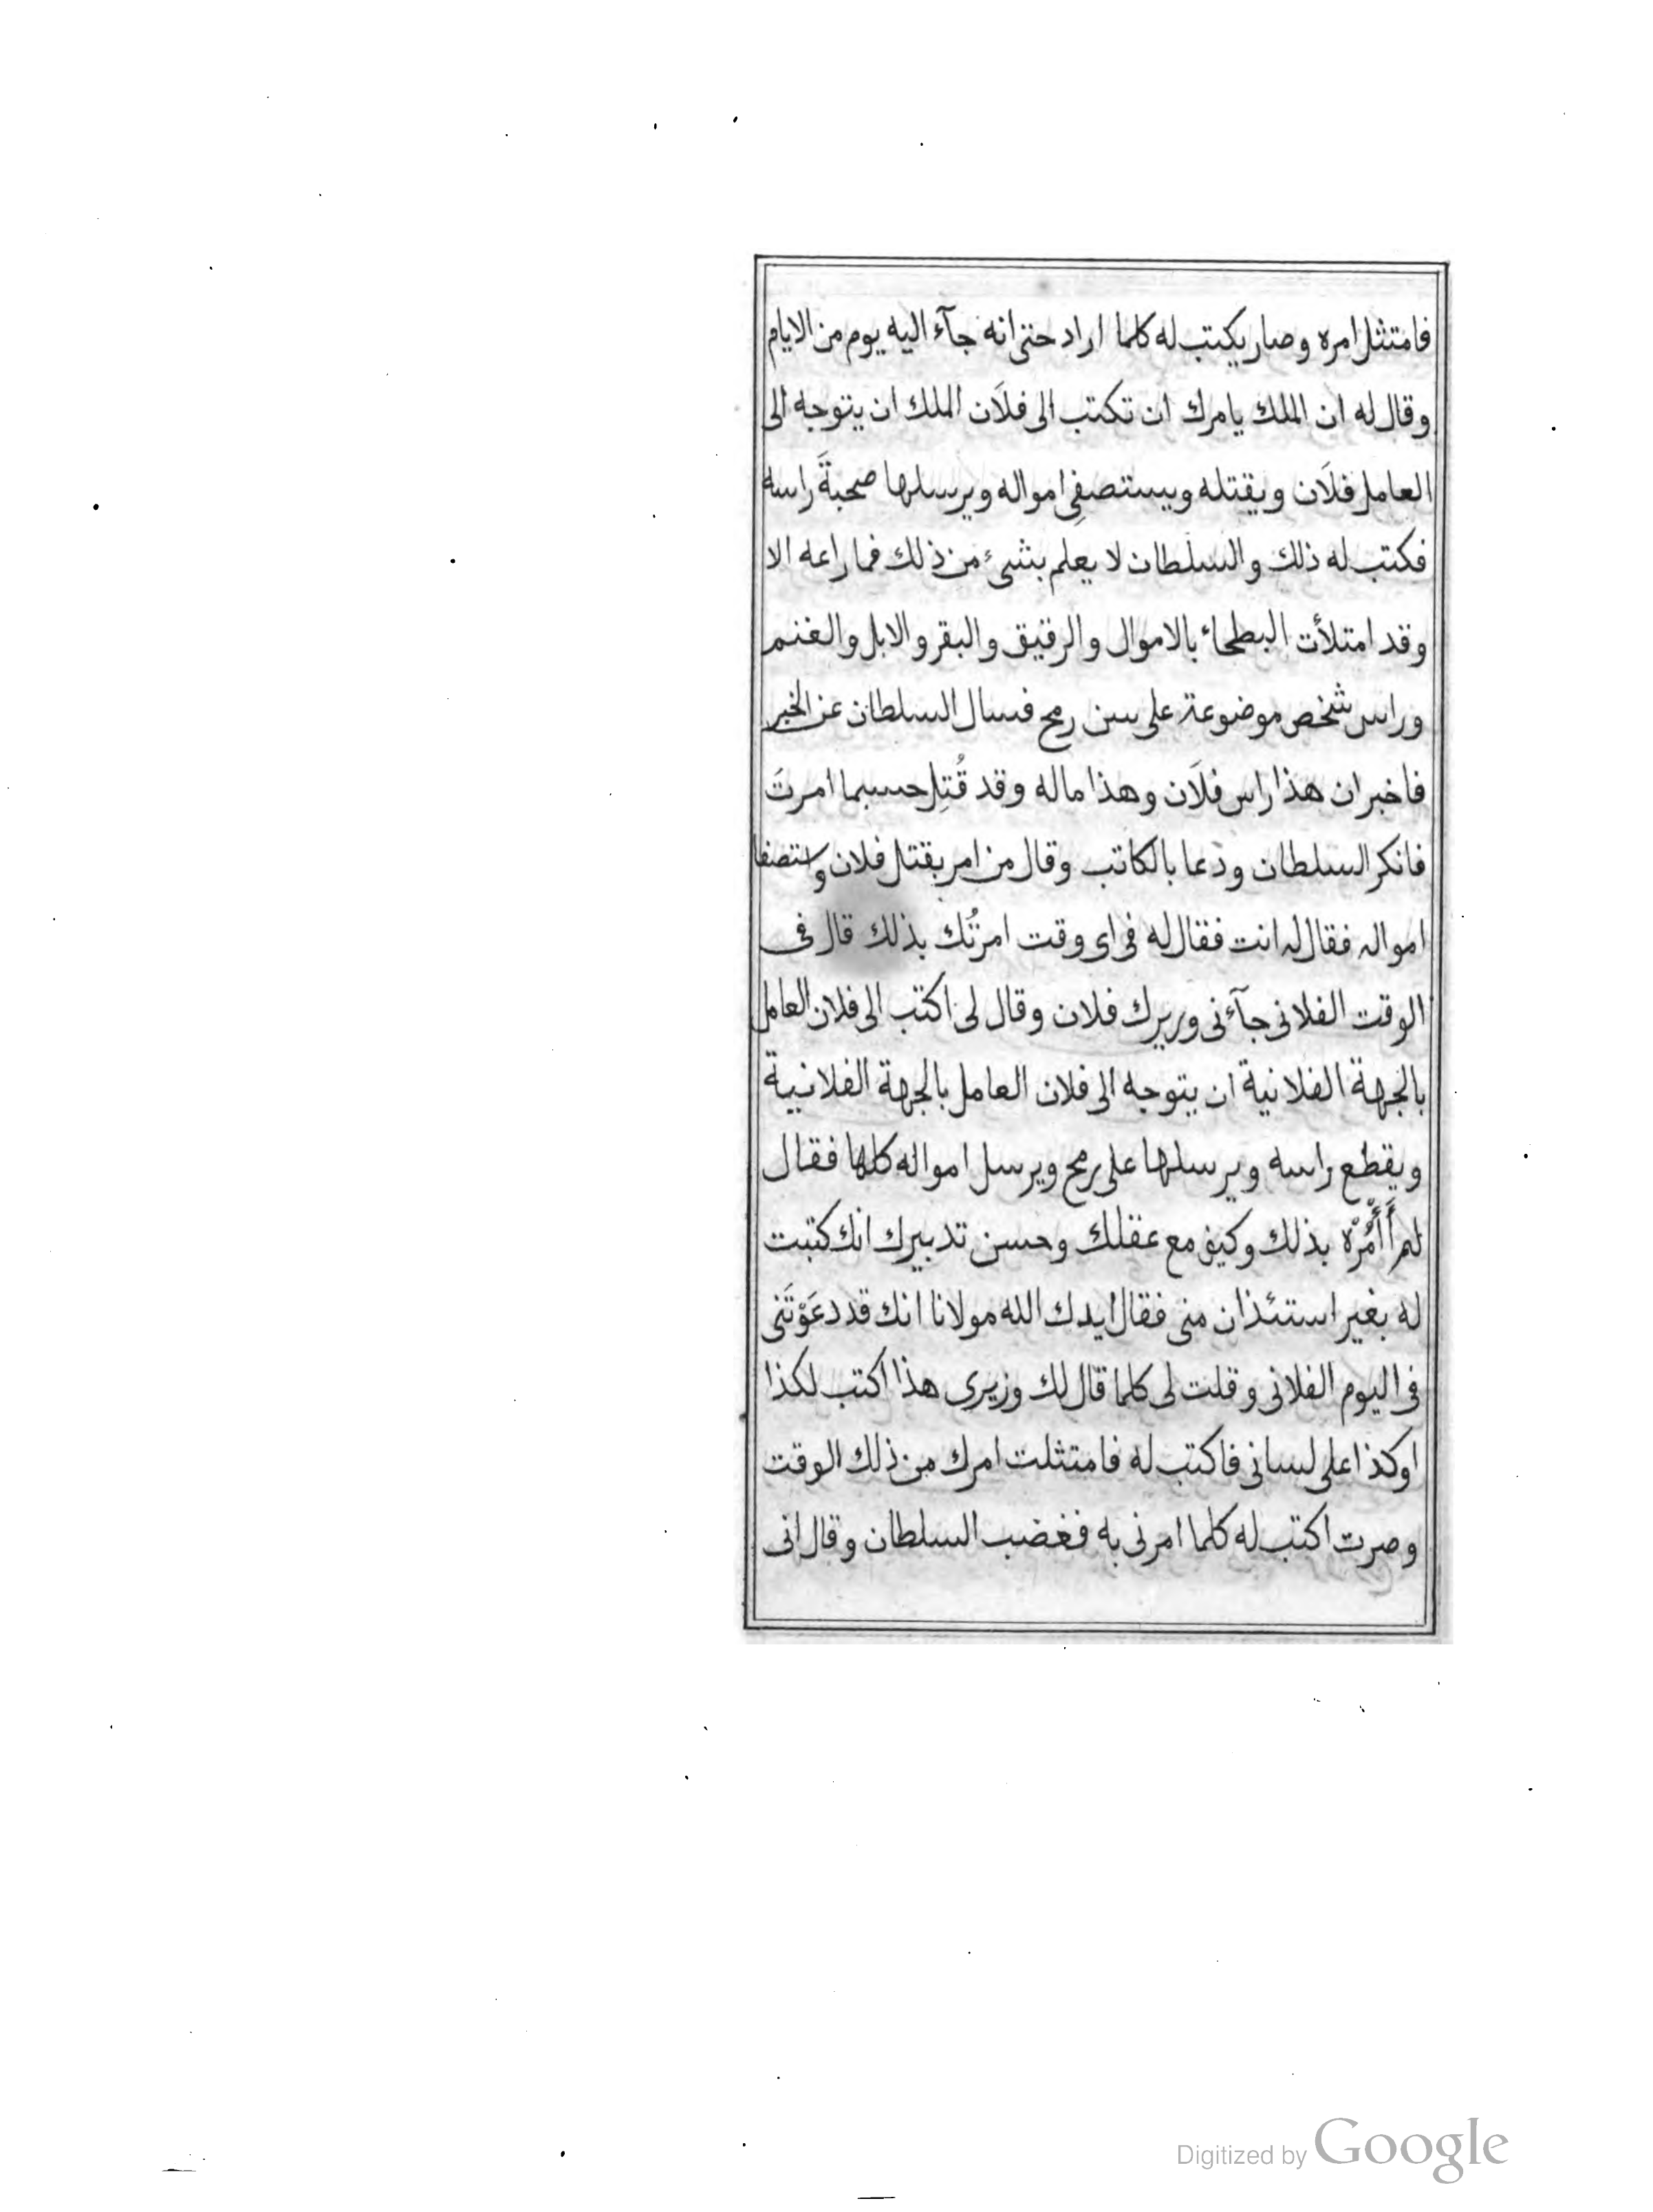 فامتثل امره وصار يكتب له كلما اراد حتى انه جآء اليه يوم من الايام
وقال له ان الملك يامرك ان تكتب الى فلَان الملك ان يتوجه الى
العامل فلَان ويقتله ويستصفِى امواله ويرسلها صحبةَ راسه
فكتب له ذلك والسلطان لا يعلم بشىء من ذلك فما راعه الا
وقد امتلأت البطحاء بالاموال والرقيق والبقر والابل والغنم
وراس شخص موضوعة على سن رمح فسال السلطان عن الخبر
فاخبر ان هذا راس فلَان وهذا ماله وقد قُتِل حسبما امرتَ
فانكر السلطان ودعا بالكاتب وقال من امر بقتل فلان واستصفا
امواله فقال له انت فقال له فى اى وقت امرتُك بذلك قال فى
الوقت الفلانى جآءنى وزيرك فلان وقال لى اكتب الى فلان العامل
بالجهة الفلانية ان يتوجه الى فلان العامل بالجهة الفلانية
ويقطع راسه ويرسلها على رمح ويرسل امواله كلها فقال
لم أَأْمُرْه بذلك وكيف مع عقلك وحسن تدبيرك انك كتبت
له بغير استئذان منى فقال ايدك الله مولانا انك قد دعَوْتَنى
فى اليوم الفلانى وقلت لى كلما قال لك وزيرى هذا اكتب لكذا
اوكذا على لسانى فاكتب له فامتثلت امرك من ذلك الوقت
وصرت اكتب له كلما امرنى به فغضب السلطان وقال انى
Digitized by Google